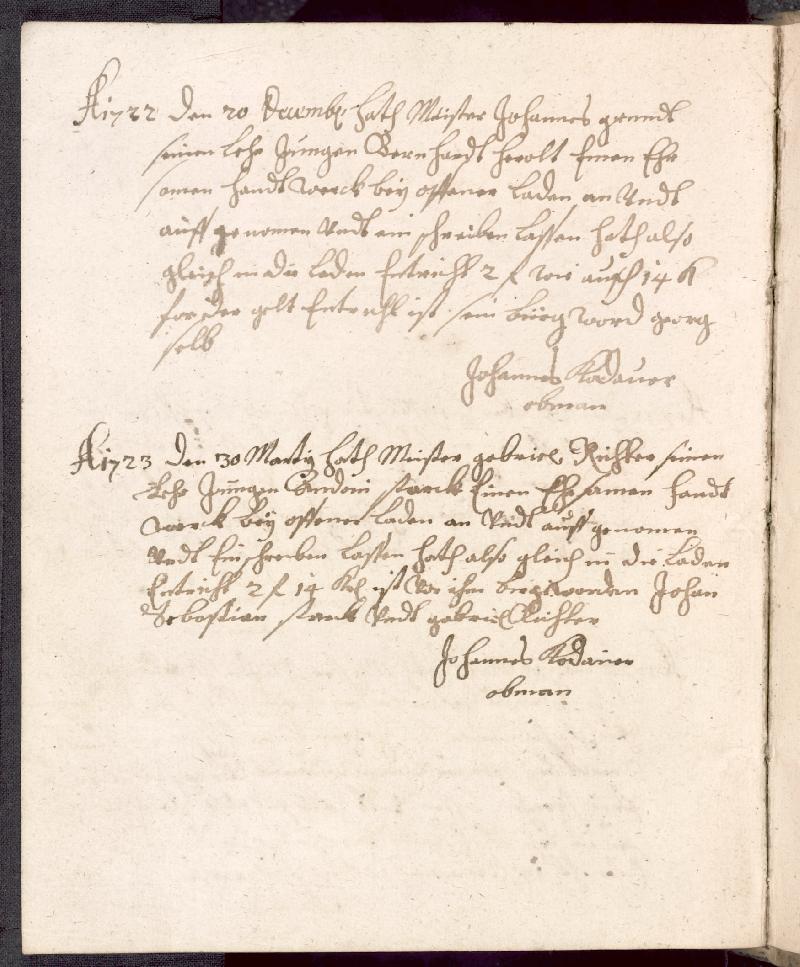 A 1722 den 20 Decembr hath Meister Johannes grundt
seinen Lehr Jungen Bernhardt herolt Einen Ehr
samen handt werck bey offener laden an Vndt
auff genomen Vndt ein schreiben lassen hath also
gleich in die laden Entricht 2 f wie auch 14 K
forder gelt Entricht ist sein bürg word georg
selb
Johannes Kodauer
obman
A 1723 den 30 Marty hath Meister gabriel Richter seinen
Lehr Jungen Andoni starck Einen Ehrsamen handt
werck bey offener laden an Vndt auff genomen
Vndt Einschreiben lassen hath also gleich in die laden
Entricht 2 f 14 Kr ist Vor ihm birg worden Johan
Sebastian starck Vndt gabriel Richter
Johannes Kodauer
obman